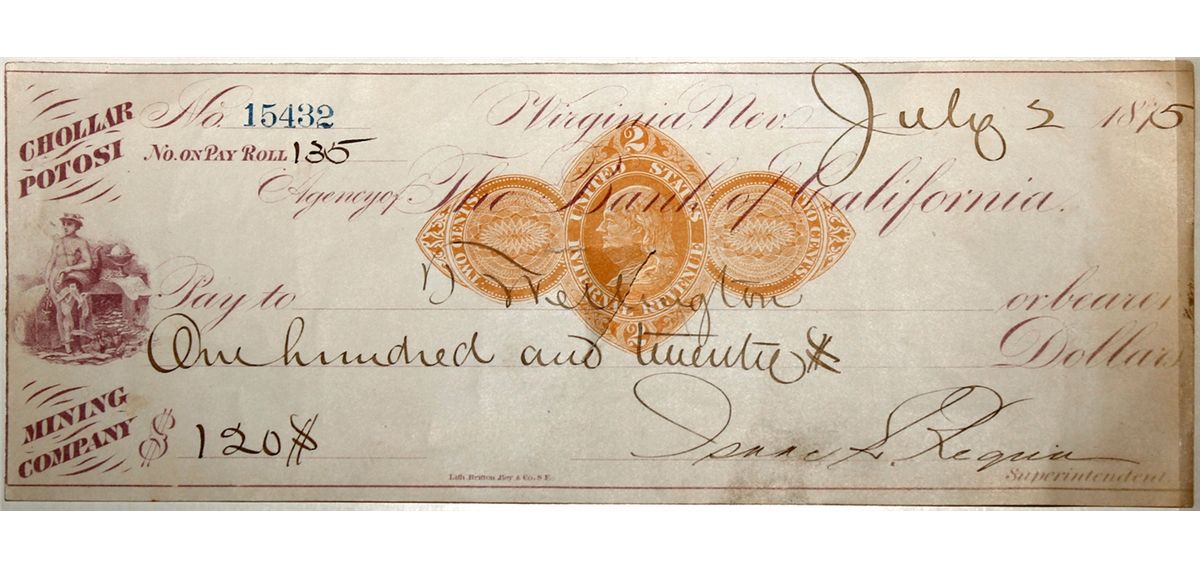 CHOLLAR
POTOSI
No. 15432
Virginia, Nev. July 2 1875
No. ON PAY ROLL 135
Agency of The Bank of California.
2
UNITED STATES
INTERNAL REVENUE
TWO CENTS
TWO CENTS
2
Pay to or bearer
One hundred and twenty $ Dollars
MINING
COMPANY
$ 120 $
Isaac L. Requa
Superintendent.
Lith. Britton, Rey & Co. S.F.